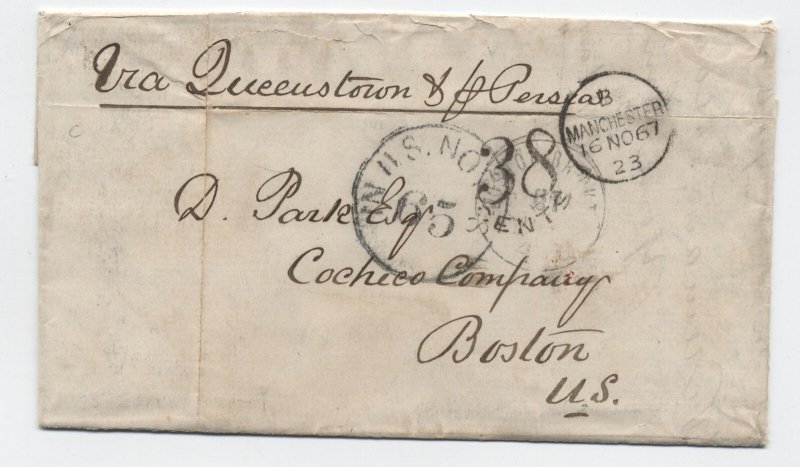 Via Queenstown & p Persia
B
MANCHESTER
16 NO 67
23
IN U.S. NOTES
65
38
CENTS
D. Park Esqr
Cocheco Company
Boston
U.S.